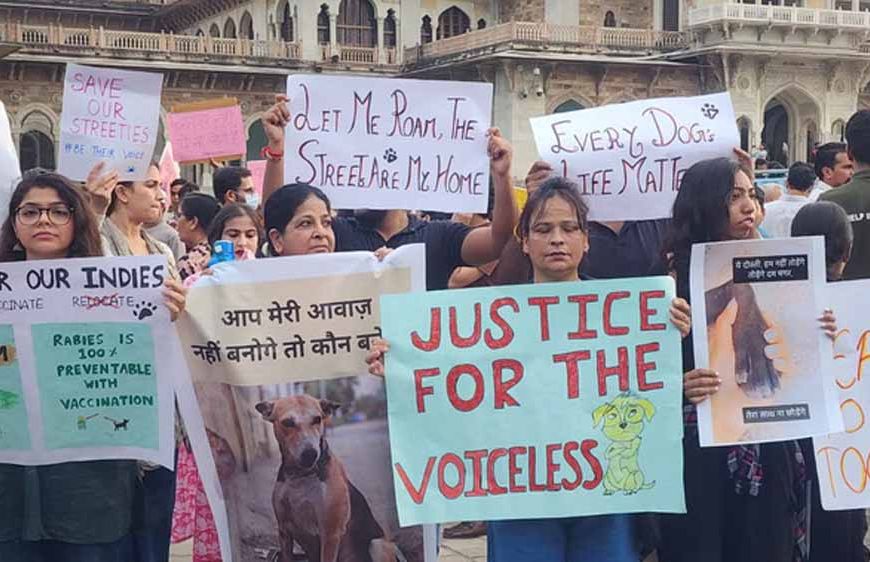 SAVE
OUR
STREETIES
#BE THEIR VOICE
LET ME ROAM, THE
STREETS ARE MY HOME
EVERY DOG's
LIFE MATTE
R OUR INDIES
CCINATE RELOCATE
RABIES IS
100%
PREVENTABLE
WITH
VACCINATION
आप मेरी आवाज़
नहीं बनोगे तो कौन ब
JUSTICE
FOR THE
VOICELESS
ये दोस्ती, हम नहीं तोड़ेंगे
तोड़ेंगे दम मगर,
तेरा साथ ना छोड़ेंगे
TOO
HELP